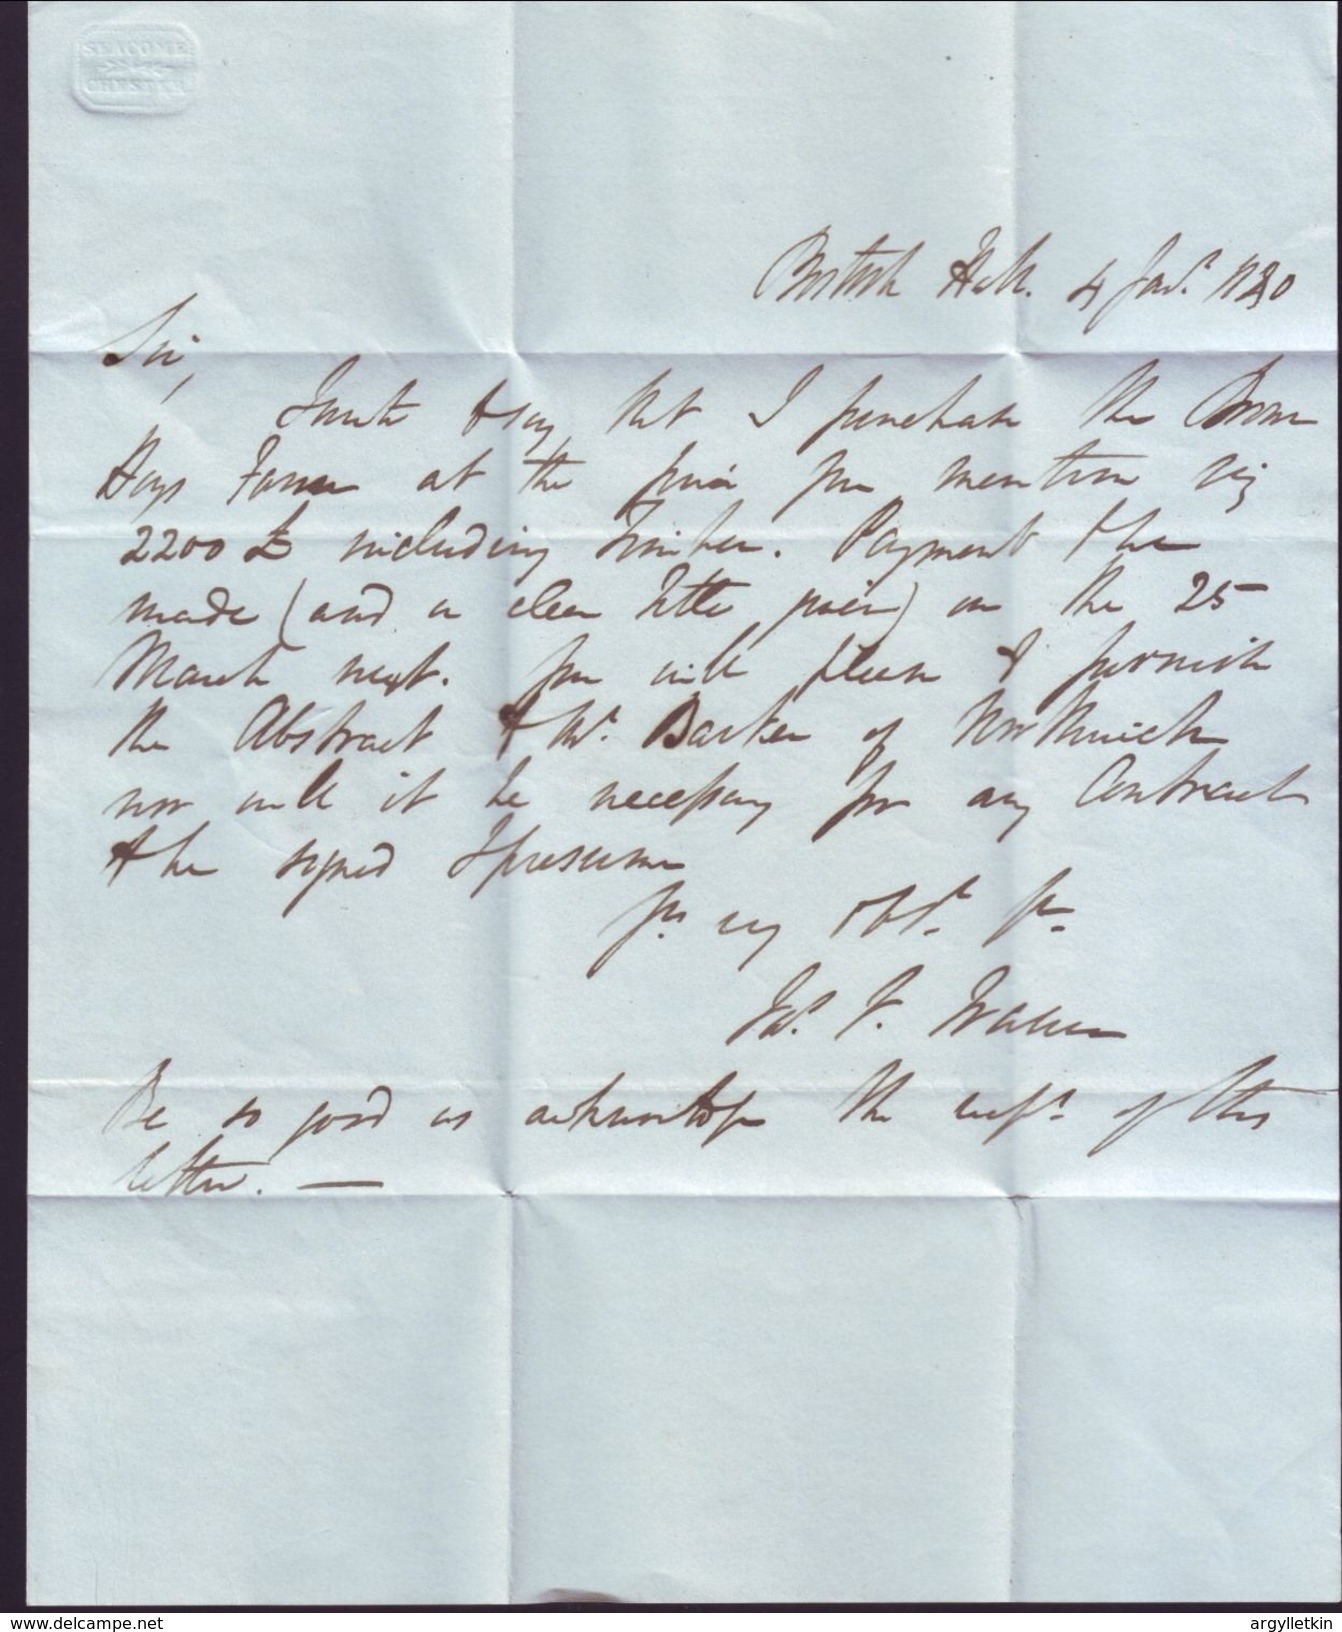 SEACOME
CHESTER
Hall. 4 Jany.
Sir,
I write to say that I purchase the Broom
Hays Farm at the price you mention viz
2200 £ including Timber. Payment to be
made (and a clear Title given) on the 25
March next. You will please to furnish
the Abstract to Mr. Barker of Northwich
nor will it be necessary for any Contract
to be signed I presume
Yr. very obt. Sr.
Be so good as acknowledge the rect. of this
letter. —
www.delcampe.net
argylletkin